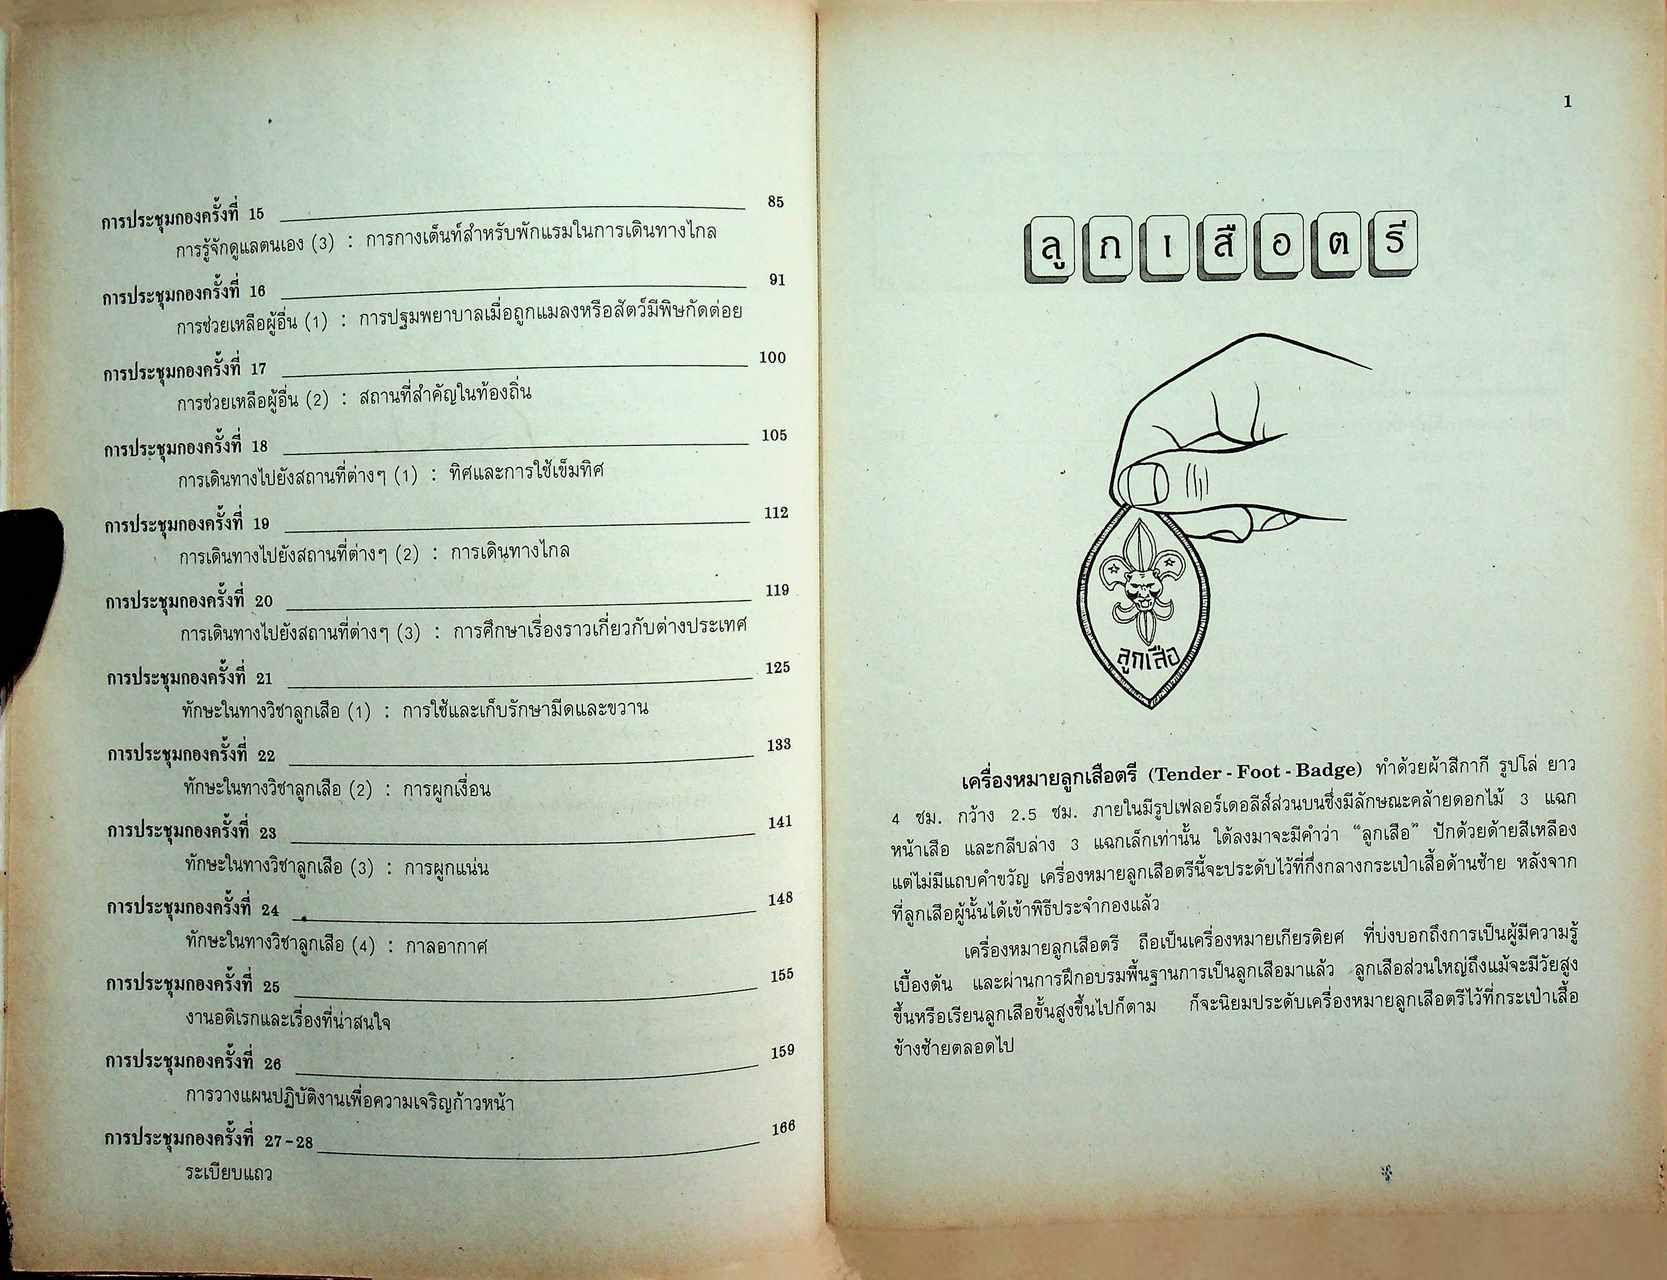 การประชุมกองครั้งที่ 15 85
การรู้จักดูแลตนเอง (3) : การกางเต็นท์สำหรับพักแรมในการเดินทางไกล
การประชุมกองครั้งที่ 16 91
การช่วยเหลือผู้อื่น (1) : การปฐมพยาบาลเมื่อถูกแมลงหรือสัตว์มีพิษกัดต่อย
การประชุมกองครั้งที่ 17 100
การช่วยเหลือผู้อื่น (2) : สถานที่สำคัญในท้องถิ่น
การประชุมกองครั้งที่ 18 105
การเดินทางไปยังสถานที่ต่างๆ (1) : ทิศและการใช้เข็มทิศ
การประชุมกองครั้งที่ 19 112
การเดินทางไปยังสถานที่ต่างๆ (2) : การเดินทางไกล
การประชุมกองครั้งที่ 20 119
การเดินทางไปยังสถานที่ต่างๆ (3) : การศึกษาเรื่องราวเกี่ยวกับต่างประเทศ
การประชุมกองครั้งที่ 21 125
ทักษะในทางวิชาลูกเสือ (1) : การใช้และเก็บรักษามีดและขวาน
การประชุมกองครั้งที่ 22 133
ทักษะในทางวิชาลูกเสือ (2) : การผูกเงื่อน
การประชุมกองครั้งที่ 23 141
ทักษะในทางวิชาลูกเสือ (3) : การผูกแน่น
การประชุมกองครั้งที่ 24 148
ทักษะในทางวิชาลูกเสือ (4) : กาลอากาศ
การประชุมกองครั้งที่ 25 155
งานอดิเรกและเรื่องที่น่าสนใจ
การประชุมกองครั้งที่ 26 159
การวางแผนปฏิบัติงานเพื่อความเจริญก้าวหน้า
การประชุมกองครั้งที่ 27-28 166
ระเบียบแถว
1
ลูกเสือตรี
ลูกเสือ
เครื่องหมายลูกเสือตรี (Tender - Foot - Badge) ทำด้วยผ้าสีกากี รูปโล่ ยาว
4 ซม. กว้าง 2.5 ซม. ภายในมีรูปเฟลอร์เดอลีส์ส่วนบนซึ่งมีลักษณะคล้ายดอกไม้ 3 แฉก
หน้าเสือ และกลีบล่าง 3 แฉกเล็กเท่านั้น ใต้ลงมาจะมีคำว่า “ลูกเสือ” ปักด้วยด้ายสีเหลือง
แต่ไม่มีแถบคำขวัญ เครื่องหมายลูกเสือตรีนี้จะประดับไว้ที่กึ่งกลางกระเป๋าเสื้อด้านซ้าย หลังจาก
ที่ลูกเสือผู้นั้นได้เข้าพิธีประจำกองแล้ว
เครื่องหมายลูกเสือตรี ถือเป็นเครื่องหมายเกียรติยศ ที่บ่งบอกถึงการเป็นผู้มีความรู้
เบื้องต้น และผ่านการฝึกอบรมพื้นฐานการเป็นลูกเสือมาแล้ว ลูกเสือส่วนใหญ่ถึงแม้จะมีวัยสูง
ขึ้นหรือเรียนลูกเสือขั้นสูงขึ้นไปก็ตาม ก็จะนิยมประดับเครื่องหมายลูกเสือตรีไว้ที่กระเป๋าเสื้อ
ข้างซ้ายตลอดไป